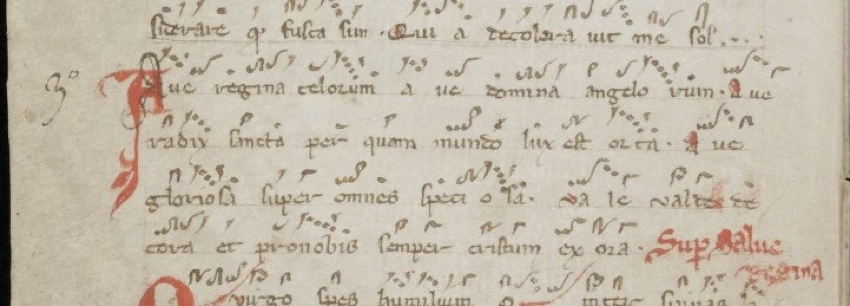 siderare qͥ fusca sum . Qui a decolora uit me sol...
3º Aue regina celorum a ue domina angelo rum . A ue
radix sancta per quam mundo lux est orta . A ue
gloriosa super omnes speci o sa . Va le valde de
cora et pronobis semper cristum ex ora . Sup Salue
regina
O virgo spes humilium